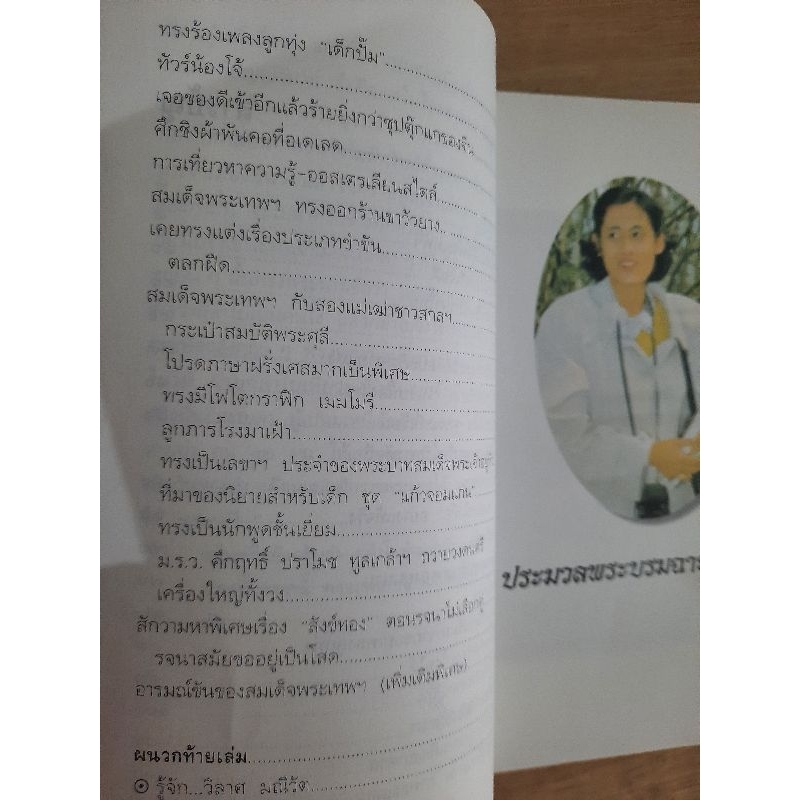 ทรงร้องเพลงลูกทุ่ง "เด็กปั๊ม"
ทัวร์น้องโจ้
เจอของดีเข้าอีกแล้วร้ายยิ่งกว่าซุปตุ๊กแกของจีน
ศึกชิงผ้าพันคอที่อเดเลด
การเที่ยวหาความรู้-ออสเตรเลียนสไตล์
สมเด็จพระเทพฯ ทรงออกร้านขาวัวยาง
เคยทรงแต่งเรื่องประเภทขำขัน
ตลกฝืด
สมเด็จพระเทพฯ กับสองแม่เฒ่าชาวสกลฯ
กระเป๋าสมบัติพระศุลี
โปรดภาษาฝรั่งเศสมากเป็นพิเศษ
ทรงมีโฟโตกราฟิก เมมโมรี่
ลูกภารโรงมาเฝ้า
ทรงเป็นเลขาฯ ประจำของพระบาทสมเด็จพระเจ้าอยู่
ที่มาของนิยายสำหรับเด็ก ชุด "แก้วจอมแก่น"
ทรงเป็นนักพูดชั้นเยี่ยม
ม.ร.ว. คึกฤทธิ์ ปราโมช ทูลเกล้าฯ ถวายวงดนตรี
เครื่องใหญ่ทั้งวง
สักวามหาพิเศษเรื่อง "สังข์ทอง" ตอนรจนาไม่เลือกคู่
รจนาสมัยขออยู่เป็นโสด
อารมณ์ขันของสมเด็จพระเทพฯ (เพิ่มเติมพิเศษ)
ผนวกท้ายเล่ม
รู้จัก...วิลาศ มณีวัต
ประมวลพระบรมฉา